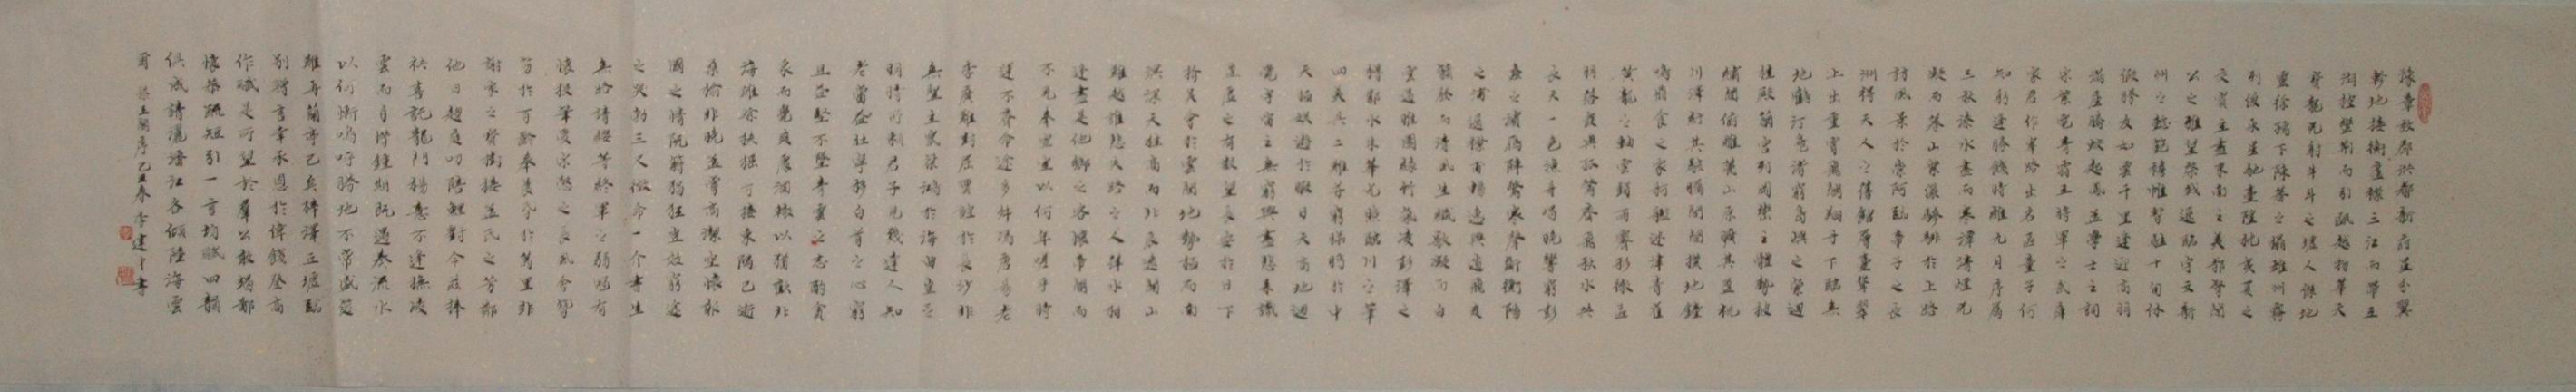 豫章故郡洪都新府星分翼
軫地接衡廬襟三江而帶五
湖控蠻荊而引甌越物華天
寶龍光射牛斗之墟人傑地
靈徐孺下陳蕃之榻雄州霧
列俊采星馳臺隍枕夷夏之
交賓主盡東南之美都督閻
公之雅望棨戟遙臨宇文新
州之懿範襜帷暫駐十旬休
假勝友如雲千里逢迎高朋
滿座騰蛟起鳳孟學士之詞
宗紫電青霜王將軍之武庫
家君作宰路出名區童子何
知躬逢勝餞時維九月序屬
三秋潦水盡而寒潭清煙光
凝而暮山紫儼驂騑於上路
訪風景於崇阿臨帝子之長
洲得天人之舊館層臺聳翠
上出重霄飛閣翔丹下臨無
地鶴汀鳧渚窮島嶼之縈迴
桂殿蘭宮列岡巒之體勢披
繡闥俯雕甍山原曠其盈視
川澤紆其駭矚閭閻撲地鐘
鳴鼎食之家舸艦迷津青雀
黃龍之軸雲銷雨霽彩徹區
明落霞與孤鶩齊飛秋水共
長天一色漁舟唱晚響窮彭
蠡之濱雁陣驚寒聲斷衡陽
之浦遙襟甫暢逸興遄飛爽
籟發而清風生纖歌凝而白
雲遏睢園綠竹氣凌彭澤之
樽鄴水朱華光照臨川之筆
四美具二難并窮睇眄於中
天極娛遊於暇日天高地迥
覺宇宙之無窮興盡悲來識
盈虛之有數望長安於日下
指吳會於雲間地勢極而南
溟深天柱高而北辰遠關山
難越誰悲失路之人萍水相
逢盡是他鄉之客懷帝閽而
不見奉宣室以何年嗟乎時
運不齊命途多舛馮唐易老
李廣難封屈賈誼於長沙非
無聖主竄梁鴻於海曲豈乏
明時所賴君子見幾達人知
老當益壯寧移白首之心窮
且益堅不墜青雲之志酌貪
泉而覺爽處涸轍以猶歡北
海雖賒扶搖可接東隅已逝
桑榆非晚孟嘗高潔空懷報
國之情阮籍猖狂豈效窮途
之哭勃三尺微命一介書生
無路請纓等終軍之弱冠有
懷投筆愛宗慤之長風舍簪
笏於百齡奉晨昏於萬里非
謝家之寶樹接孟氏之芳鄰
他日趨庭叨陪鯉對今茲捧
袂喜託龍門楊意不逢撫凌
雲而自惜鐘期既遇奏流水
以何慚嗚呼勝地不常盛筵
難再蘭亭已矣梓澤丘墟臨
別贈言幸承恩於偉餞登高
作賦是所望於羣公敢竭鄙
懷恭疏短引一言均賦四韻
俱成請灑潘江各傾陸海雲
爾 滕王閣序 乙丑春 李建中書